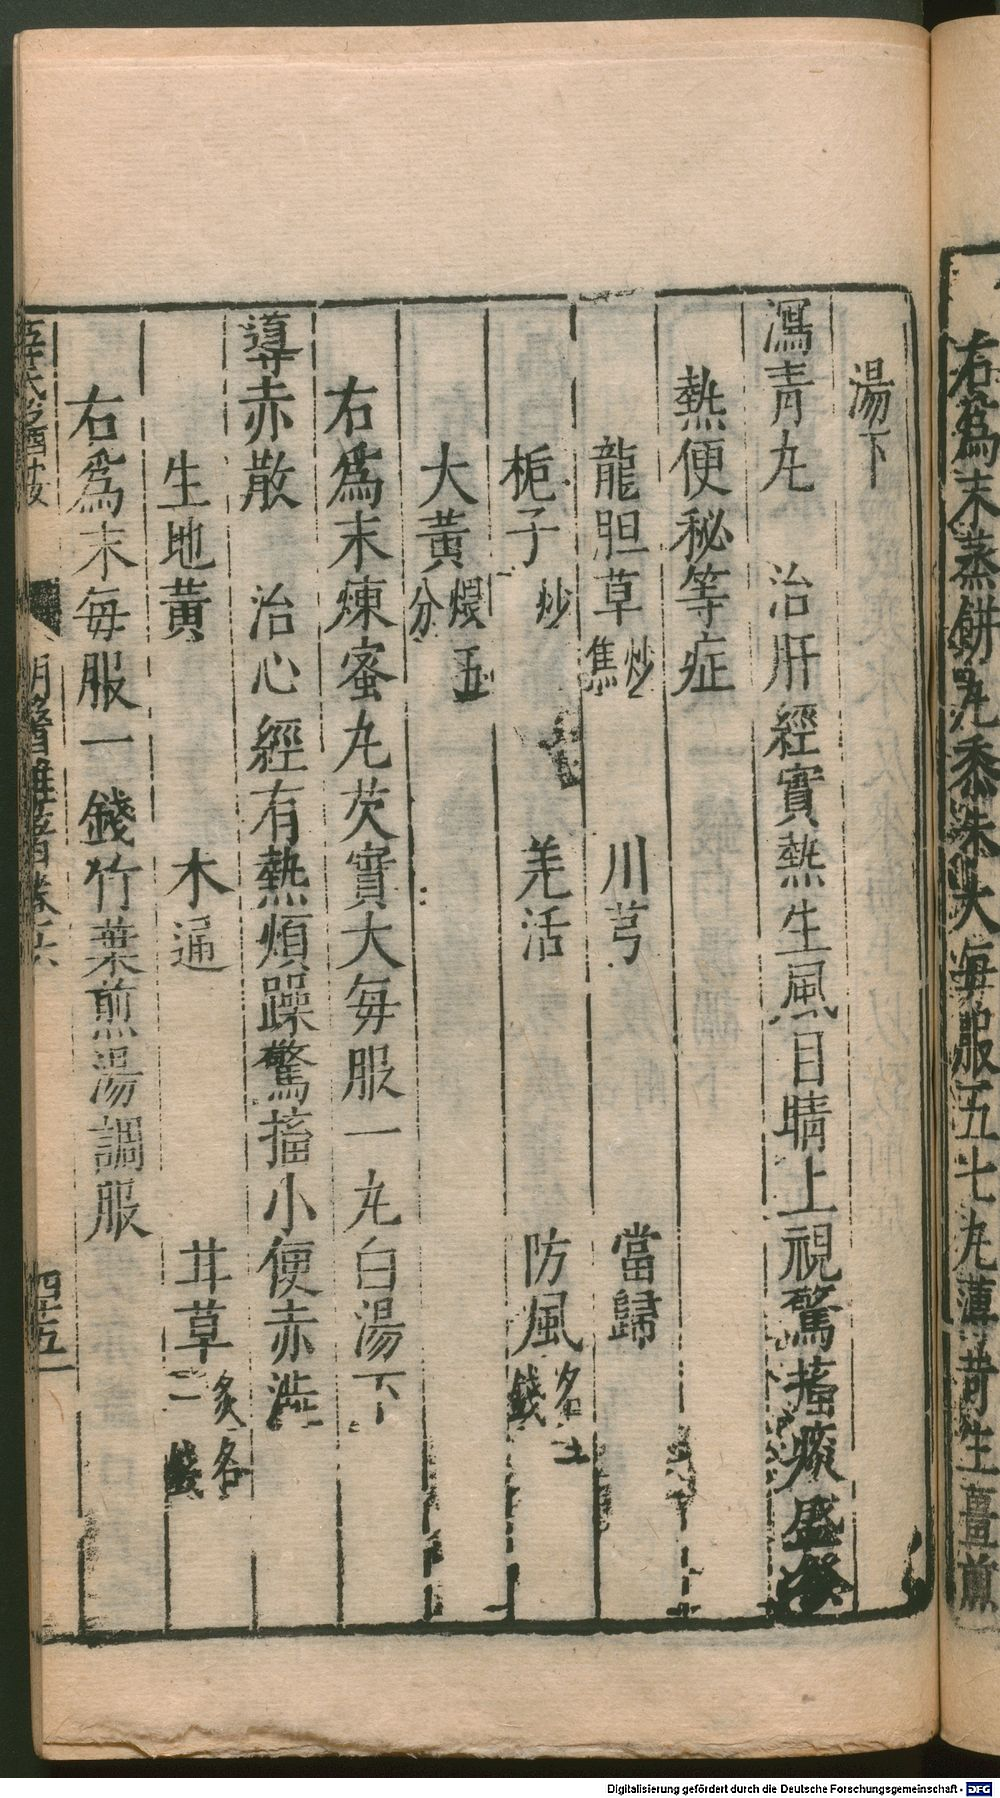 右爲末蒸餅丸黍米大每服五七丸薄荷生薑煎
湯下
瀉青丸　治肝經實熱生風目睛上視驚搐痰盛發
熱便秘等症
龍胆草炒焦　川芎　當歸
梔子炒　羌活　防風各一錢
大黃煨五分
右爲末煉蜜丸芡實大每服一丸白湯下
導赤散　治心經有熱煩躁驚搐小便赤澁
生地黃　木通　甘草炙各二錢
右爲末每服一錢竹葉煎湯調服
明醫雜著卷之六
四十五
Digitalisierung gefördert durch die Deutsche Forschungsgemeinschaft - DFG